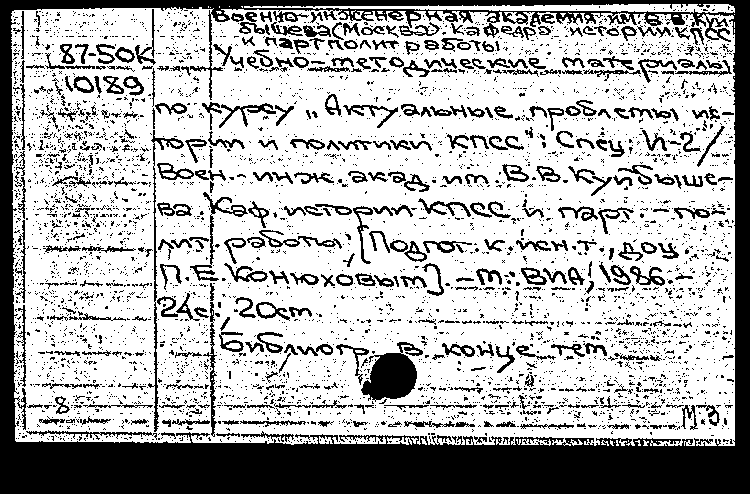 Военно-инженерная академия им. В. В. Куй-
бышева (Москва). Кафедра истории КПСС
и партполитработы.
87-50К
Учебно-методические материалы
10189
по курсу „Актуальные проблемы ис-
тории и политики КПСС": Спец. И-2 /
Воен.-инж. акад. им. В.В.Куйбыше-
ва. Каф. истории КПСС и парт.-по-
лит. работы; [Подгот. к.ист.н., доц.
П.Е.Конюховым]. - М.: ВИА, 1986. -
24с.; 20см.
Библиогр. в конце тем
8
М.З.